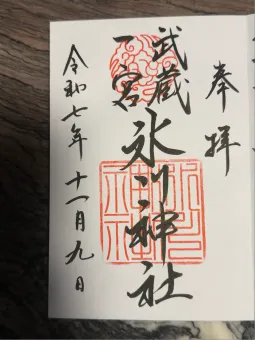 奉拝
武蔵
一宮
氷川神社
令和七年十一月九日